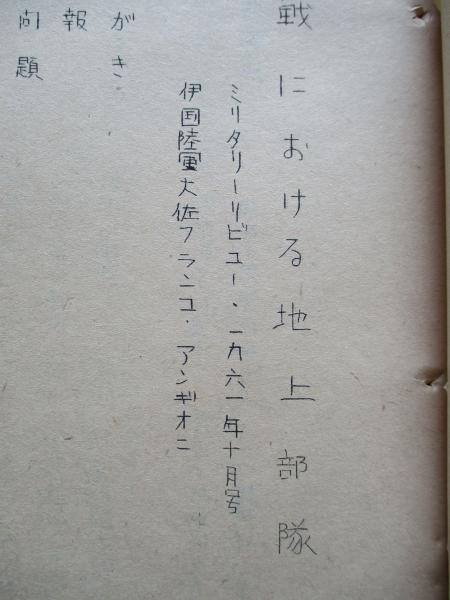 戦における地上部隊
ミリタリーリビュー・一九六一年十月号
伊国陸軍大佐フランコ・アンギオニ
がき
報
向題